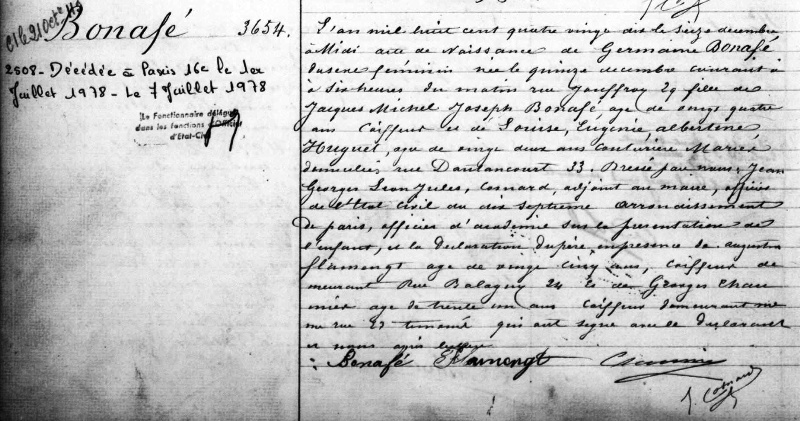 Bonafé 3654.
2508 - Décédée à Paris 16e le 1er
Juillet 1978 - Le 7 Juillet 1978
Le Fonctionnaire délégué
dans les fonctions d'Officier
d'Etat-Civil
L'an mil huit cent quatre vingt dix le seize decembre
à Midi acte de Naissance de Germaine Bonafé
du sexe féminin née le quinze decembre courant à
à six heures du matin rue Jouffroy 29 fille de
Jacques Michel Joseph Bonafé age de vingt quatre
ans Coiffeur et de Louise, Eugénie, albertine
Huguet, age de vingt deux ans Couturière Mariés
domiciliés rue Dautancourt 33. Dressé par nous, Jean
Georges Léon Jules, Cosnard, adjoint au maire, officier
de l'Etat civil du dix septieme arrondissement
de paris, officier d'académie sur la présentation de
l'enfant, et la declaration du père, en presence de augustin
flamengt age de vingt cinq ans, Coiffeur de
meurant Rue Balagny 24 et de Georges Chau
mier age de trente un ans Coiffeur demeurant me
me rue 27 temoins qui ont signé avec le declarant
et nous après lecture
Bonafé Flamengt Chaumier
J. Cosnard